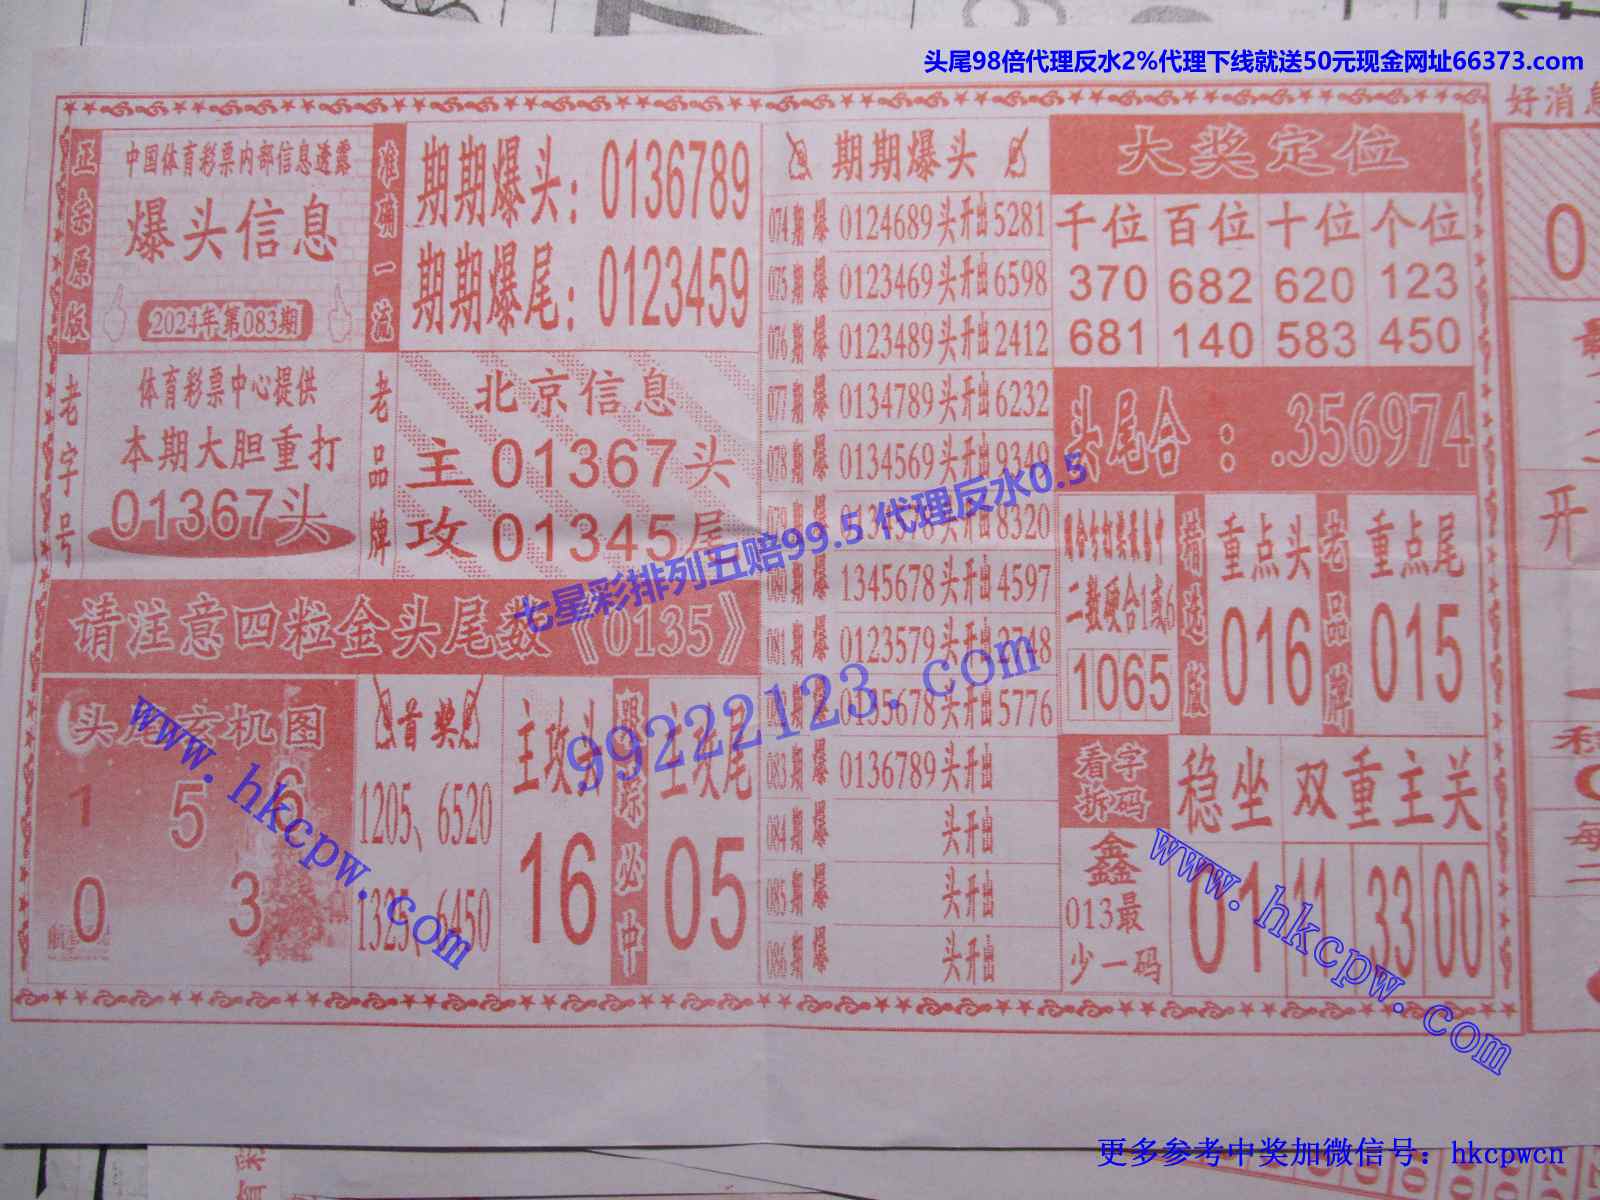 头尾98倍代理反水2%代理下线就送50元现金网址66373.com
好消息
正宗原版
中国体育彩票内部信息透露
爆头信息
2024年第083期
准确一流
期期爆头：0136789
期期爆尾：0123459
老字号
体育彩票中心提供
本期大胆重打
01367头
老品牌
北京信息
主01367头
攻01345尾
请注意四粒金头尾数《0135》
头尾玄机图
1 5 6
0 3
首奖
1205、6520
1325、6450
主攻头
16
跟踪必中
主攻尾
05
期期爆头
074期 爆 0124689头开出5281
075期 爆 0123469头开出6598
076期 爆 0123489头开出2412
077期 爆 0134789头开出6232
078期 爆 0134569头开出9349
头开出8320
080期 爆 1345678头开出4597
081期 爆 0123579头开出2748
期 爆 0135678头开出5776
083期 爆 0136789头开出
084期 爆 头开出
085期 爆 头开出
086期 爆 头开出
大奖定位
千位 百位 十位 个位
370 682 620 123
681 140 583 450
头尾合：.356974
二数硬合1或6
1065
精选版
重点头
016
老品牌
重点尾
015
看字拆码
鑫
013最
少一码
稳坐
01
双重主关
11 33 00
0
开
七星彩排列五赔99.5 代理反水0.5
99222123.com
www.hkcpw.com
www.hkcpw.com
更多参考中奖加微信号：hkcpwcn